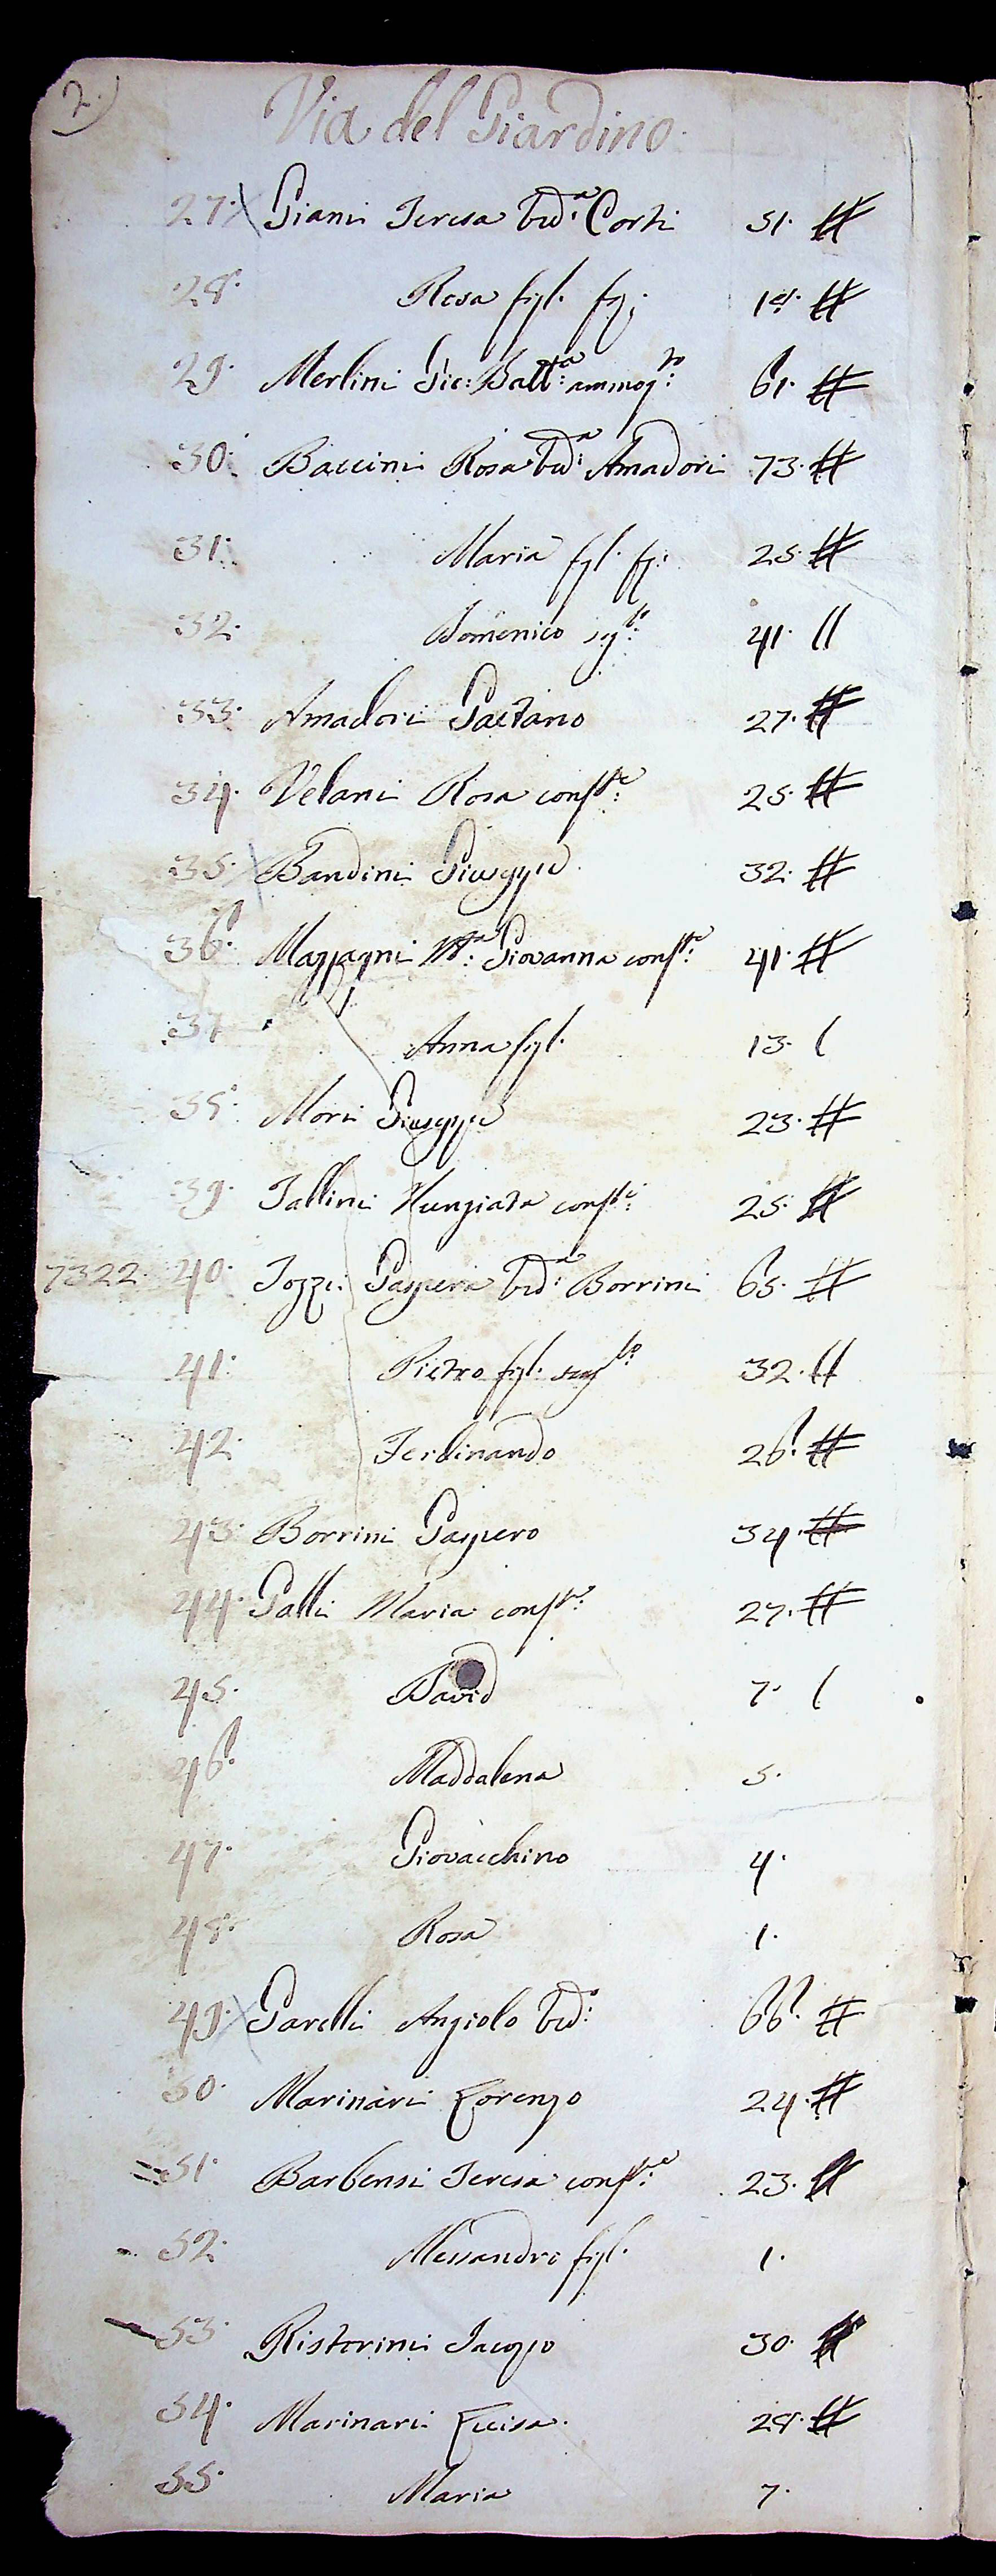 2.)
Via del Giardino.
27. Giani Teresa Ved:a Corti 51. #
28. Rosa figl. 18. #
29. Merlini Gio: Batt:a ammog:to 61. #
30. Baccini Rosa Ved:a Amadori 73. #
31. Maria figl. 25. #
32. Domenico 41. //
33. Amadori Gaetano 27. #
34. Velani Rosa conf:te 25. #
35. Bandini Giuseppe 32. #
36. Mazzagni M:a Giovanna conf:te 41. #
37 Anna figl. 13. (
38. Mori Giuseppe 23. #
39. Tallini Nunziata conf:te 25. #
7322. 40. Tozzi Gaspera Ved:a Borrini 65. #
41. Pietro figl. 32. //
42. Ferdinando 26. #
43. Borrini Gaspero 34. #
44. Galli Maria conf:te 27. #
45. David 7. (
46. Maddalena 5.
47. Giovacchino 4.
48. Rosa 1.
49. Garelli Angiolo Ved:o 66. #
50. Marinari Lorenzo 24. #
51. Barbensi Teresa conf:te 23. #
52. Alessandro figl. 1.
53. Ristorini Jacopo 30. #
54. Marinari Luisa. 28. #
55. Maria 7.